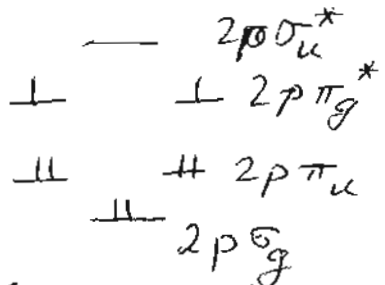 2pσu*
2pπg*
2pπu
2pσg